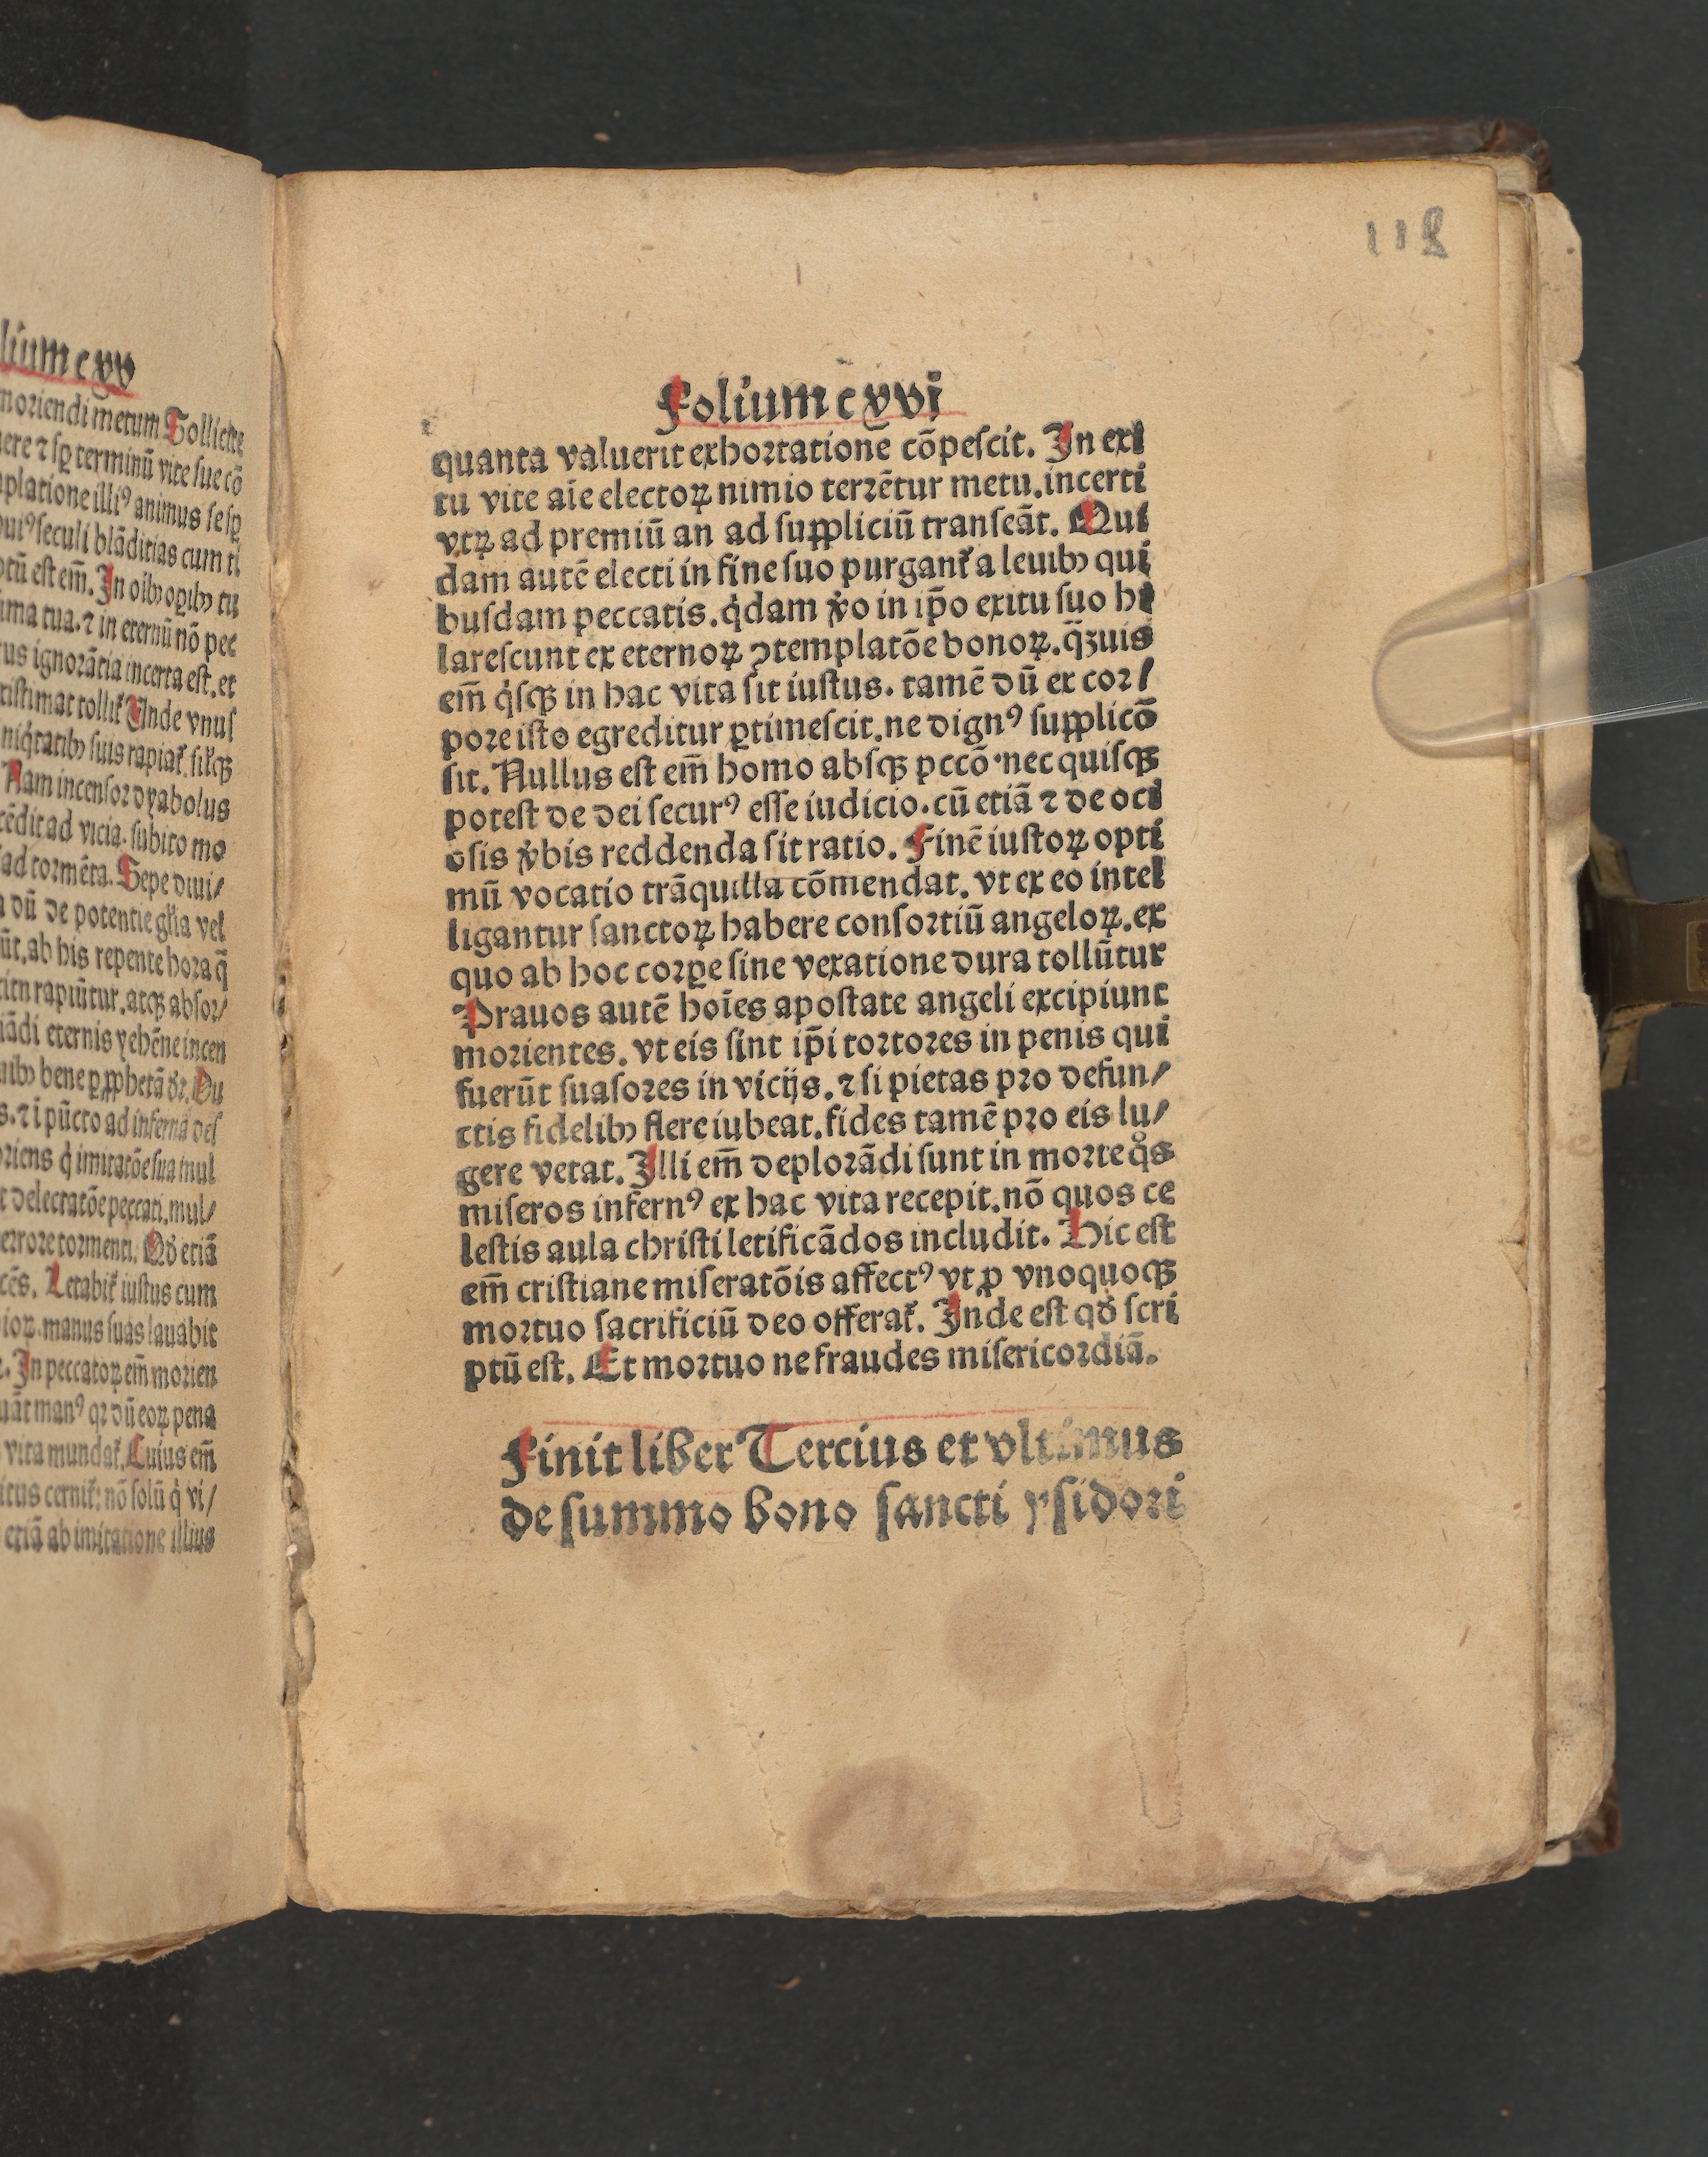 lium cxv
moriendi metum Sollicite
ere ⁊ sꝑ terminū vite sue cō
platione illiꝰ animus se sꝑ
uiꝰ seculi blāditias cum ti
ptū est em̄. In oibꝫ oꝑibꝫ tu
ima tua. ⁊ in eternū nō pec
us ignorātia incerta est. et
ristimat tollit᷑ Unde vnus
niq̇tatibꝫ suis rapiat᷑. sil̛ꝙ
Nam incensor dyabolus
cēdit ad vicia. subito mo
ad tormēta. Sepe diui/
a dū de potentie gl̛ia vel
ūt. ab his repente hora q̄
itu rapiūtur. atqꝫ absor/
iādi eternis yehēne incen
uibꝫ bene ꝑ ꝓphetā dr̄. Du
s. ⁊ i pūcto ad inferna des
riens q̇ imitatōe sua mul
t delectatōe peccati. mul/
errore tormenti. Qḋ etiā
cēs. Letabit᷑ iustus cum
ioꝝ. manus suas lauabit
. In peccatoꝝ em̄ morien
uāt manꝰ qꝛ dū eoꝝ pena
vita mundat᷑. Cuius em̄
itus cernit᷑: nō solū q̇ vi/
etiā ab imitatione illius
118
Folium cxvi
quanta valuerit exhortatione cōpescit. In exi
tu vite aīe electoꝝ nimio terrētur metu. incerti
vtꝝ ad premiū an ad suppliciū transeāt. Qui
dam autē electi in fine suo purgant᷑ a leuibꝫ qui
busdam peccatis. q̇dam v̊o in ip̄o exitu suo hi
larescunt ex eternoꝝ ꝯtemplatōe bonoꝝ. q̄ꝫuis
em̄ q̇sqꝫ in hac vita sit iustus. tamē dū ex cor/
pore isto egreditur ꝑtimescit. ne dignꝰ supplicō
sit. Nullus est em̄ homo absqꝫ pccō. nec quisqꝫ
potest de dei securꝰ esse iudicio. cū etiā ⁊ de oci
osis v̊bis reddenda sit ratio. Finē iustoꝝ opti
mū vocatio trāquilla cōmendat. vt ex eo intel
ligantur sanctoꝝ habere consortiū angeloꝝ. ex
quo ab hoc corꝑe sine vexatione dura tollūtur
Prauos autē hoīes apostate angeli excipiunt
morientes. vt eis sint ip̄i tortores in penis qui
fuerūt suasores in vicijs. ⁊ si pietas pro defun/
ctis fidelibꝫ flere iubeat. fides tamē pro eis lu/
gere vetat. Illi em̄ deplorādi sunt in morte qͦs
miseros infernꝰ ex hac vita recepit. nō quos ce
lestis aula christi letificādos includit. Hic est
em̄ cristiane miseratōis affectꝰ vt ꝓ vnoquoqꝫ
mortuo sacrificiū deo offerat᷑. Inde est qḋ scri
ptū est. Et mortuo ne fraudes misericordiā.
Finit liber Tercius et vltimus
de summo bono sancti ysidori